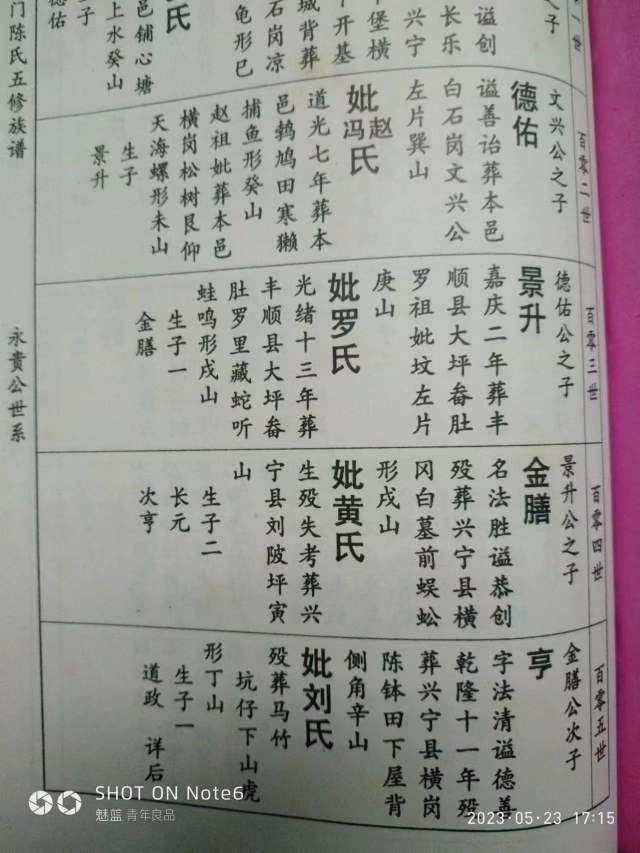 一世
之子
谥创
长乐
兴宁
堡横
开基
城背葬
石岗凉
龟形巳
氏
邑铺心塘
上水癸山
生子
德佑
百零二世
文兴公之子
德佑
谥善诒葬本邑
白石岗文兴公
左片巽山
妣赵冯氏
道光七年葬本
邑鹁鸠田寒獭
捕鱼形癸山
赵祖妣葬本邑
横岗松树艮仰
天海螺形未山
生子
景升
百零三世
德佑公之子
景升
嘉庆二年葬丰
顺县大坪畲肚
罗祖妣坟左片
庚山
妣罗氏
光绪十三年葬
丰顺县大坪畲
肚罗里藏蛇听
蛙鸣形戌山
生子一
金膳
百零四世
景升公之子
金膳
名法胜谥恭创
殁葬兴宁县横
冈白墓前蜈蚣
形戌山
妣黄氏
生殁失考葬兴
宁县刘陂坪寅
山
生子二
长元
次亨
百零五世
金膳公次子
亨
字法清谥德善
乾隆十一年殁
葬兴宁县横岗
陈钵田下屋背
侧角辛山
妣刘氏
殁葬马竹
坑仔下山虎
形丁山
生子一
道政 详后
门陈氏五修族谱
永贵公世系
SHOT ON Note6
魅蓝 青年良品
2023·05·23 17:15